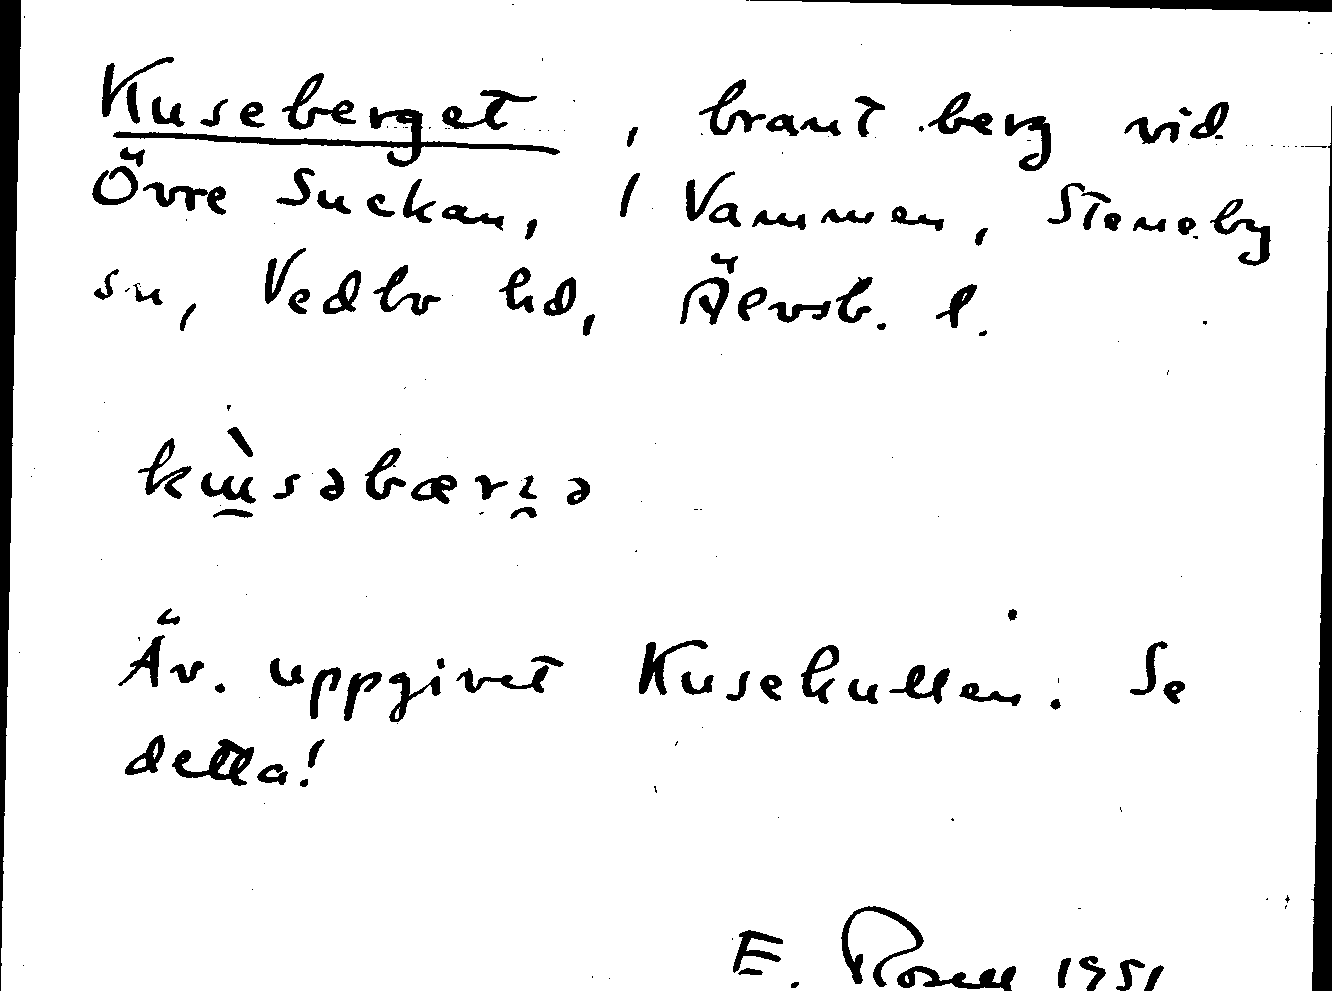 Kuseberget, brant berg vid
Övre Suckan, 1 Vammen, Steneby
sn, Vedbo hd, Älvsb. l.
kɯ̀səbærʐə
Äv. uppgivet Kusekullen. Se
detta!
E. Rosell 1951